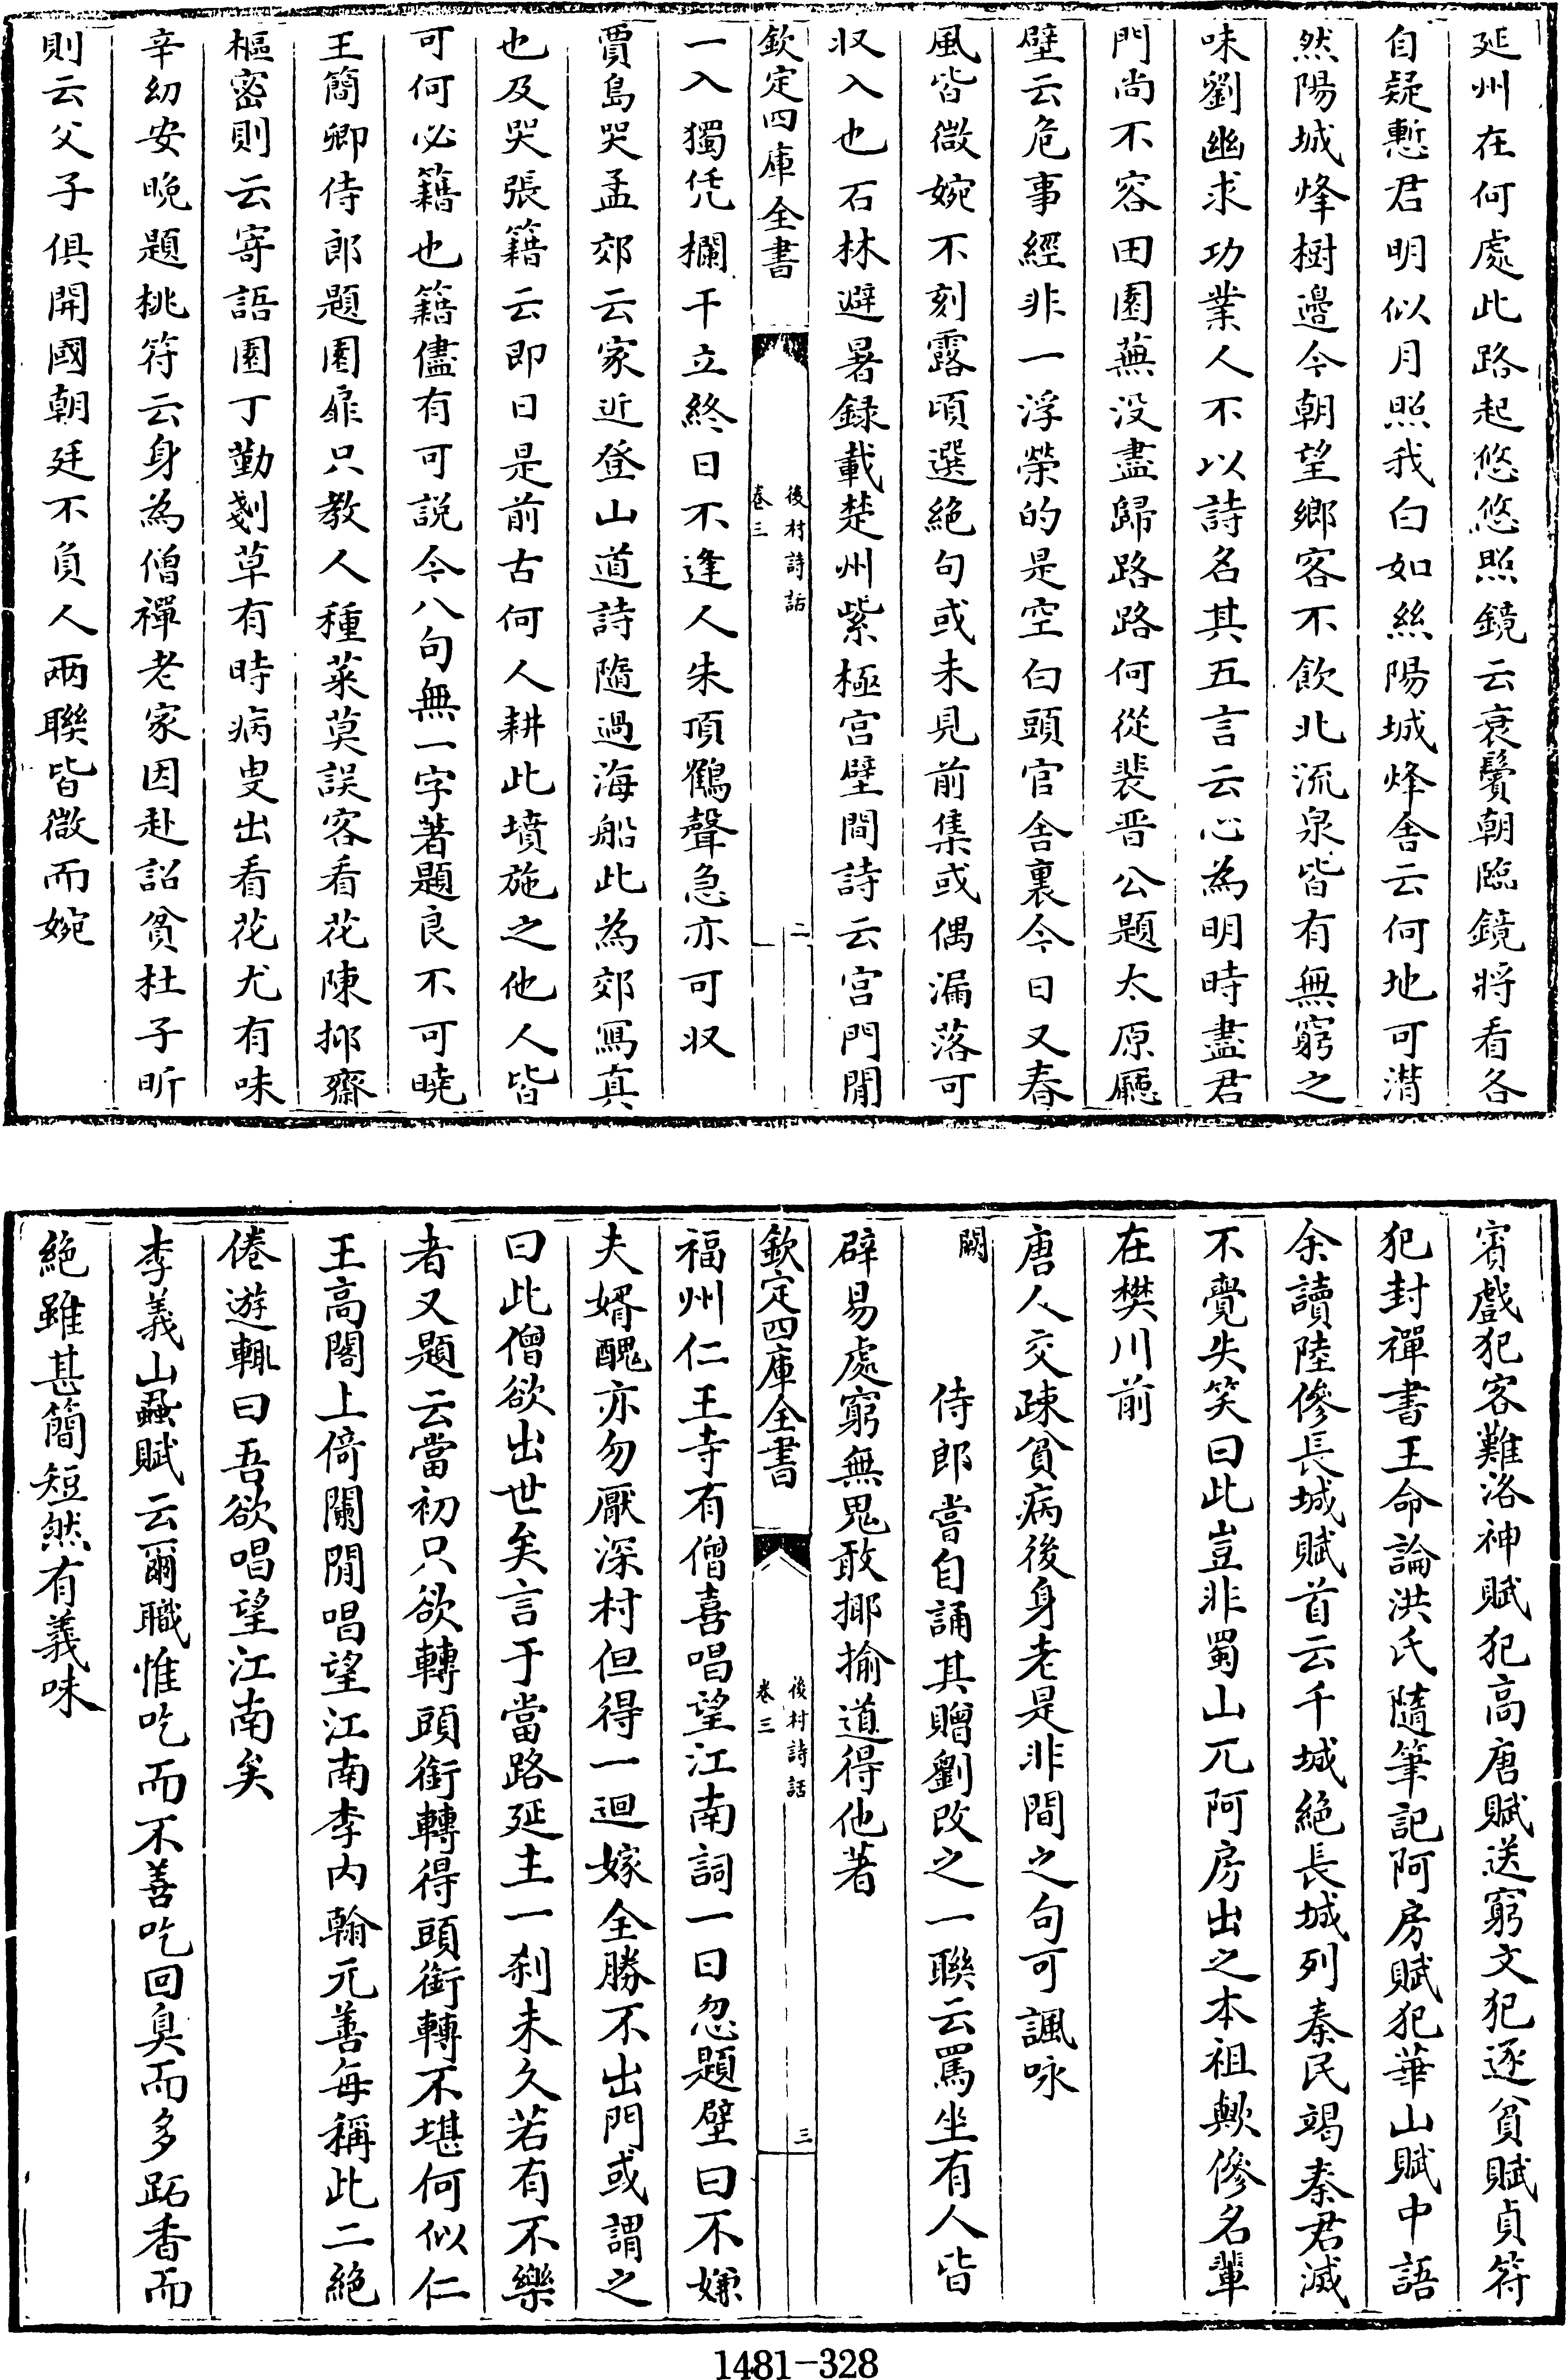 延州在何處此路起悠悠照鏡云衰鬢朝臨鏡將看各
自疑慙君明似月照我白如絲陽城烽舍云何地可潸
然陽城烽樹邊今朝望鄉客不飲北流泉皆有無窮之
味劉幽求功業人不以詩名其五言云心為明時盡君
門尚不容田園蕪没盡歸路路何從裴晋公題太原廳
壁云危事經非一浮榮的是空白頭官舍裏今日又春
風皆微婉不刻露頃選絶句或未見前集或偶漏落可
収入也石林避暑録載楚州紫極宫壁間詩云宫門閒
欽定四庫全書
後村詩話
卷三
二
一入獨凭欄干立終日不逢人朱頂鶴聲急亦可収
賈島哭孟郊云家近登山道詩隨過海船此為郊寫真
也及哭張籍云即日是前古何人耕此墳施之他人皆
可何必籍也籍儘有可說今八句無一字著題良不可曉
王簡卿侍郎題園扉只教人種菜莫誤客看花陳抑齋
樞密則云寄語園丁勤剗草有時病叟出看花尤有味
辛幼安晚題桃符云身為僧禪老家因赴詔貧杜子昕
則云父子俱開國朝廷不負人兩聯皆微而婉
賓戲犯客難洛神賦犯高唐賦送窮文犯逐貧賦貞符
犯封禪書王命論洪氏隨筆記阿房賦犯華山賦中語
余讀陸傪長城賦首云千城絶長城列秦民竭秦君滅
不覺失笑曰此豈非蜀山兀阿房出之本祖歟傪名輩
在樊川前
唐人交疎貧病後身老是非間之句可諷咏
闕
侍郎嘗自誦其贈劉改之一聯云罵坐有人皆
辟易處窮無鬼敢揶揄道得他著
欽定四庫全書
後村詩話
卷三
三
福州仁王寺有僧喜唱望江南詞一日忽題壁曰不嫌
夫婿醜亦勿厭深村但得一迴嫁全勝不出門或謂之
曰此僧欲出世矣言于當路延主一刹未久若有不樂
者又題云當初只欲轉頭銜轉得頭銜轉不堪何似仁
王高閣上倚闌閒唱望江南李内翰元善每稱此二絶
倦遊輒曰吾欲唱望江南矣
李義山蝨賦云爾職惟吃而不善吃回臭而多跖香而
絶雖甚簡短然有義味
1481-328